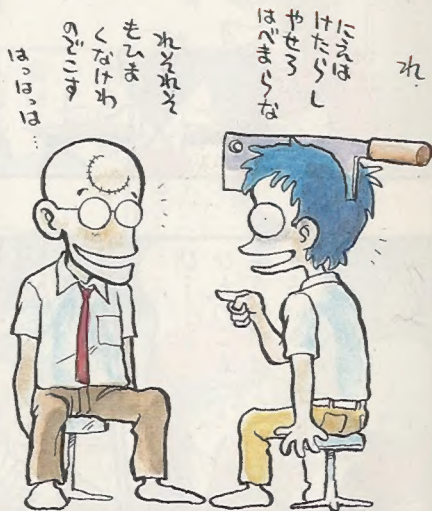 れ.
にえは
けたらし
やせろ
はべまらな
れそれそ
もひま
くなけわ
のどこす
はっはっは…